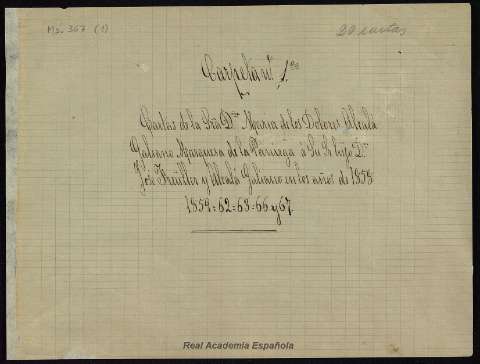 Ms. 367 (1)
20 cartas
Carpeta nº 1ª
Cartas de la Sra Dª Maria de los Dolores Alcalá
Galiano Marquesa de la Paniega á Su S. hijo Dn
José Freüller y Alcalá Galiano en los años de 1858
1859=62=63=66 y 67.
Real Academia Española